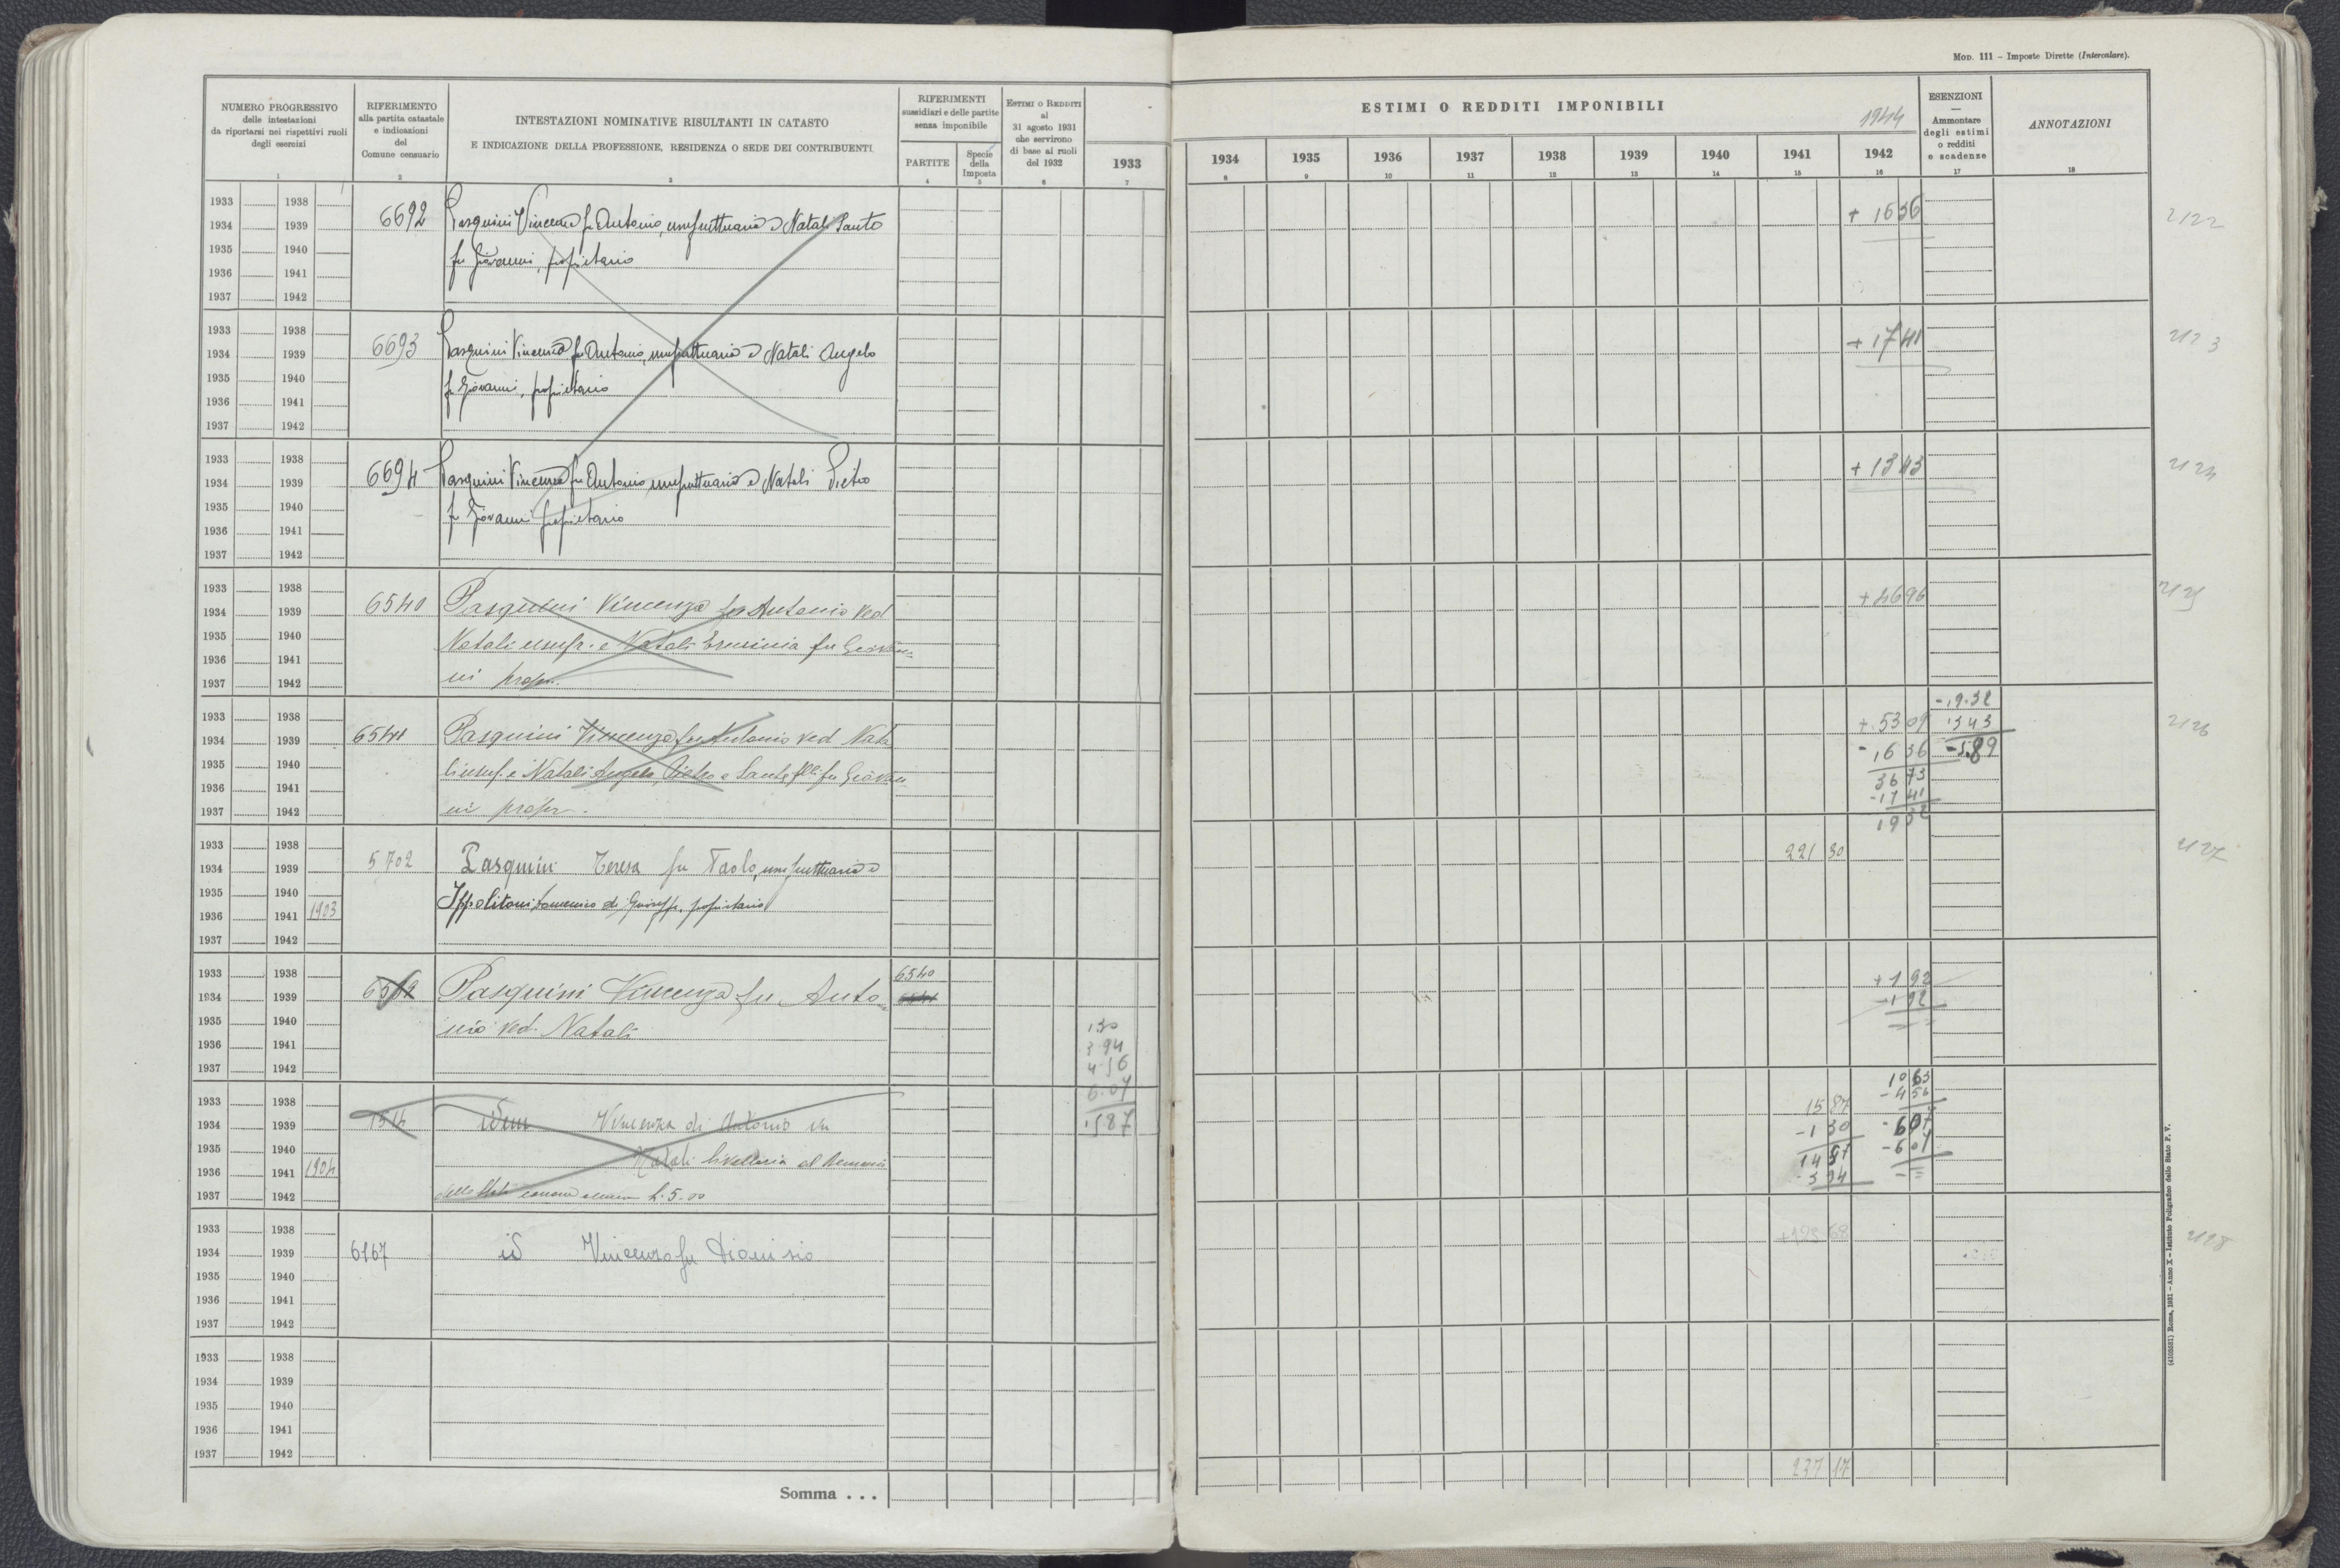 Mod. 111 – Imposte Dirette (Intercalare).
NUMERO PROGRESSIVO
delle intestazioni
da riportarsi nei rispettivi ruoli
degli esercizi
1
RIFERIMENTO
alla partita catastale
e indicazioni
del
Comune censuario
2
INTESTAZIONI NOMINATIVE RISULTANTI IN CATASTO
E INDICAZIONE DELLA PROFESSIONE, RESIDENZA O SEDE DEI CONTRIBUENTI
3
RIFERIMENTI
sussidiari e delle partite
senza imponibile
PARTITE
4
Specie
della
Imposta
5
Estimi o Redditi
al
31 agosto 1931
che servirono
di base ai ruoli
del 1932
6
1933
7
ESTIMI O REDDITI IMPONIBILI
1944
1934 1935 1936 1937 1938 1939 1940 1941 1942
8 9 10 11 12 13 14 15 16
ESENZIONI
—
Ammontare
degli estimi
o redditi
e scadenze
17
ANNOTAZIONI
18
1933 1938
1934 1939
1935 1940
1936 1941
1937 1942
6692
Pasquini Vincenza fu Antonio, usufruttuaria e Natali Santo
fu Giovanni, proprietario
+ 1636
2122
1933 1938
1934 1939
1935 1940
1936 1941
1937 1942
6693
Pasquini Vincenza fu Antonio, usufruttuaria e Natali Angelo
fu Giovanni, proprietario
+ 1741
2123
1933 1938
1934 1939
1935 1940
1936 1941
1937 1942
6694
Pasquini Vincenza fu Antonio usufruttuaria e Natali Pietro
fu Giovanni proprietario
+ 1343
2124
1933 1938
1934 1939
1935 1940
1936 1941
1937 1942
6540
Pasquini Vincenza fu Antonio ved
Natali usufr. e Natali Erminia fu Giovan=
ni propr.
+ 4696
2125
1933 1938
1934 1939
1935 1940
1936 1941
1937 1942
6541
Pasquini Vincenza fu Antonio ved Nata
li usuf. e Natali Angelo, Pietro e Sante flli fu Giovan=
ni propr.
+ 5309
- 1636
3673
- 1741
1932
- 19.32
1343
- 589
2126
1933 1938
1934 1939
1935 1940
1936 1941 1903
1937 1942
5702
Pasquini Teresa fu Paolo, usufruttuaria e
Ippolitoni Domenico di Giuseppe, proprietario
221 30
2127
1933 1938
1934 1939
1935 1940
1936 1941
1937 1942
Pasquini Vincenza fu Anto=
nio ved. Natali
6540
130
3 94
4 56
6.07
1587
+ 1 92
- 1 92
1933 1938
1934 1939
1935 1940
1936 1941 1904
1937 1942
idem Vincenza di Antonio in
Natali livellaria al Demanio
dello Stato canone annuo L. 5.00
15 87
- 1 30
14 57
- 3 94
10 63
- 4 56
607
- 607
1933 1938
1934 1939
1935 1940
1936 1941
1937 1942
6167
id Vincenzo fu Dionisio
2128
1933 1938
1934 1939
1935 1940
1936 1941
1937 1942
Somma . . .
237 17
(4105551) Roma, 1931 – Anno X – Istituto Poligrafico dello Stato P. V.